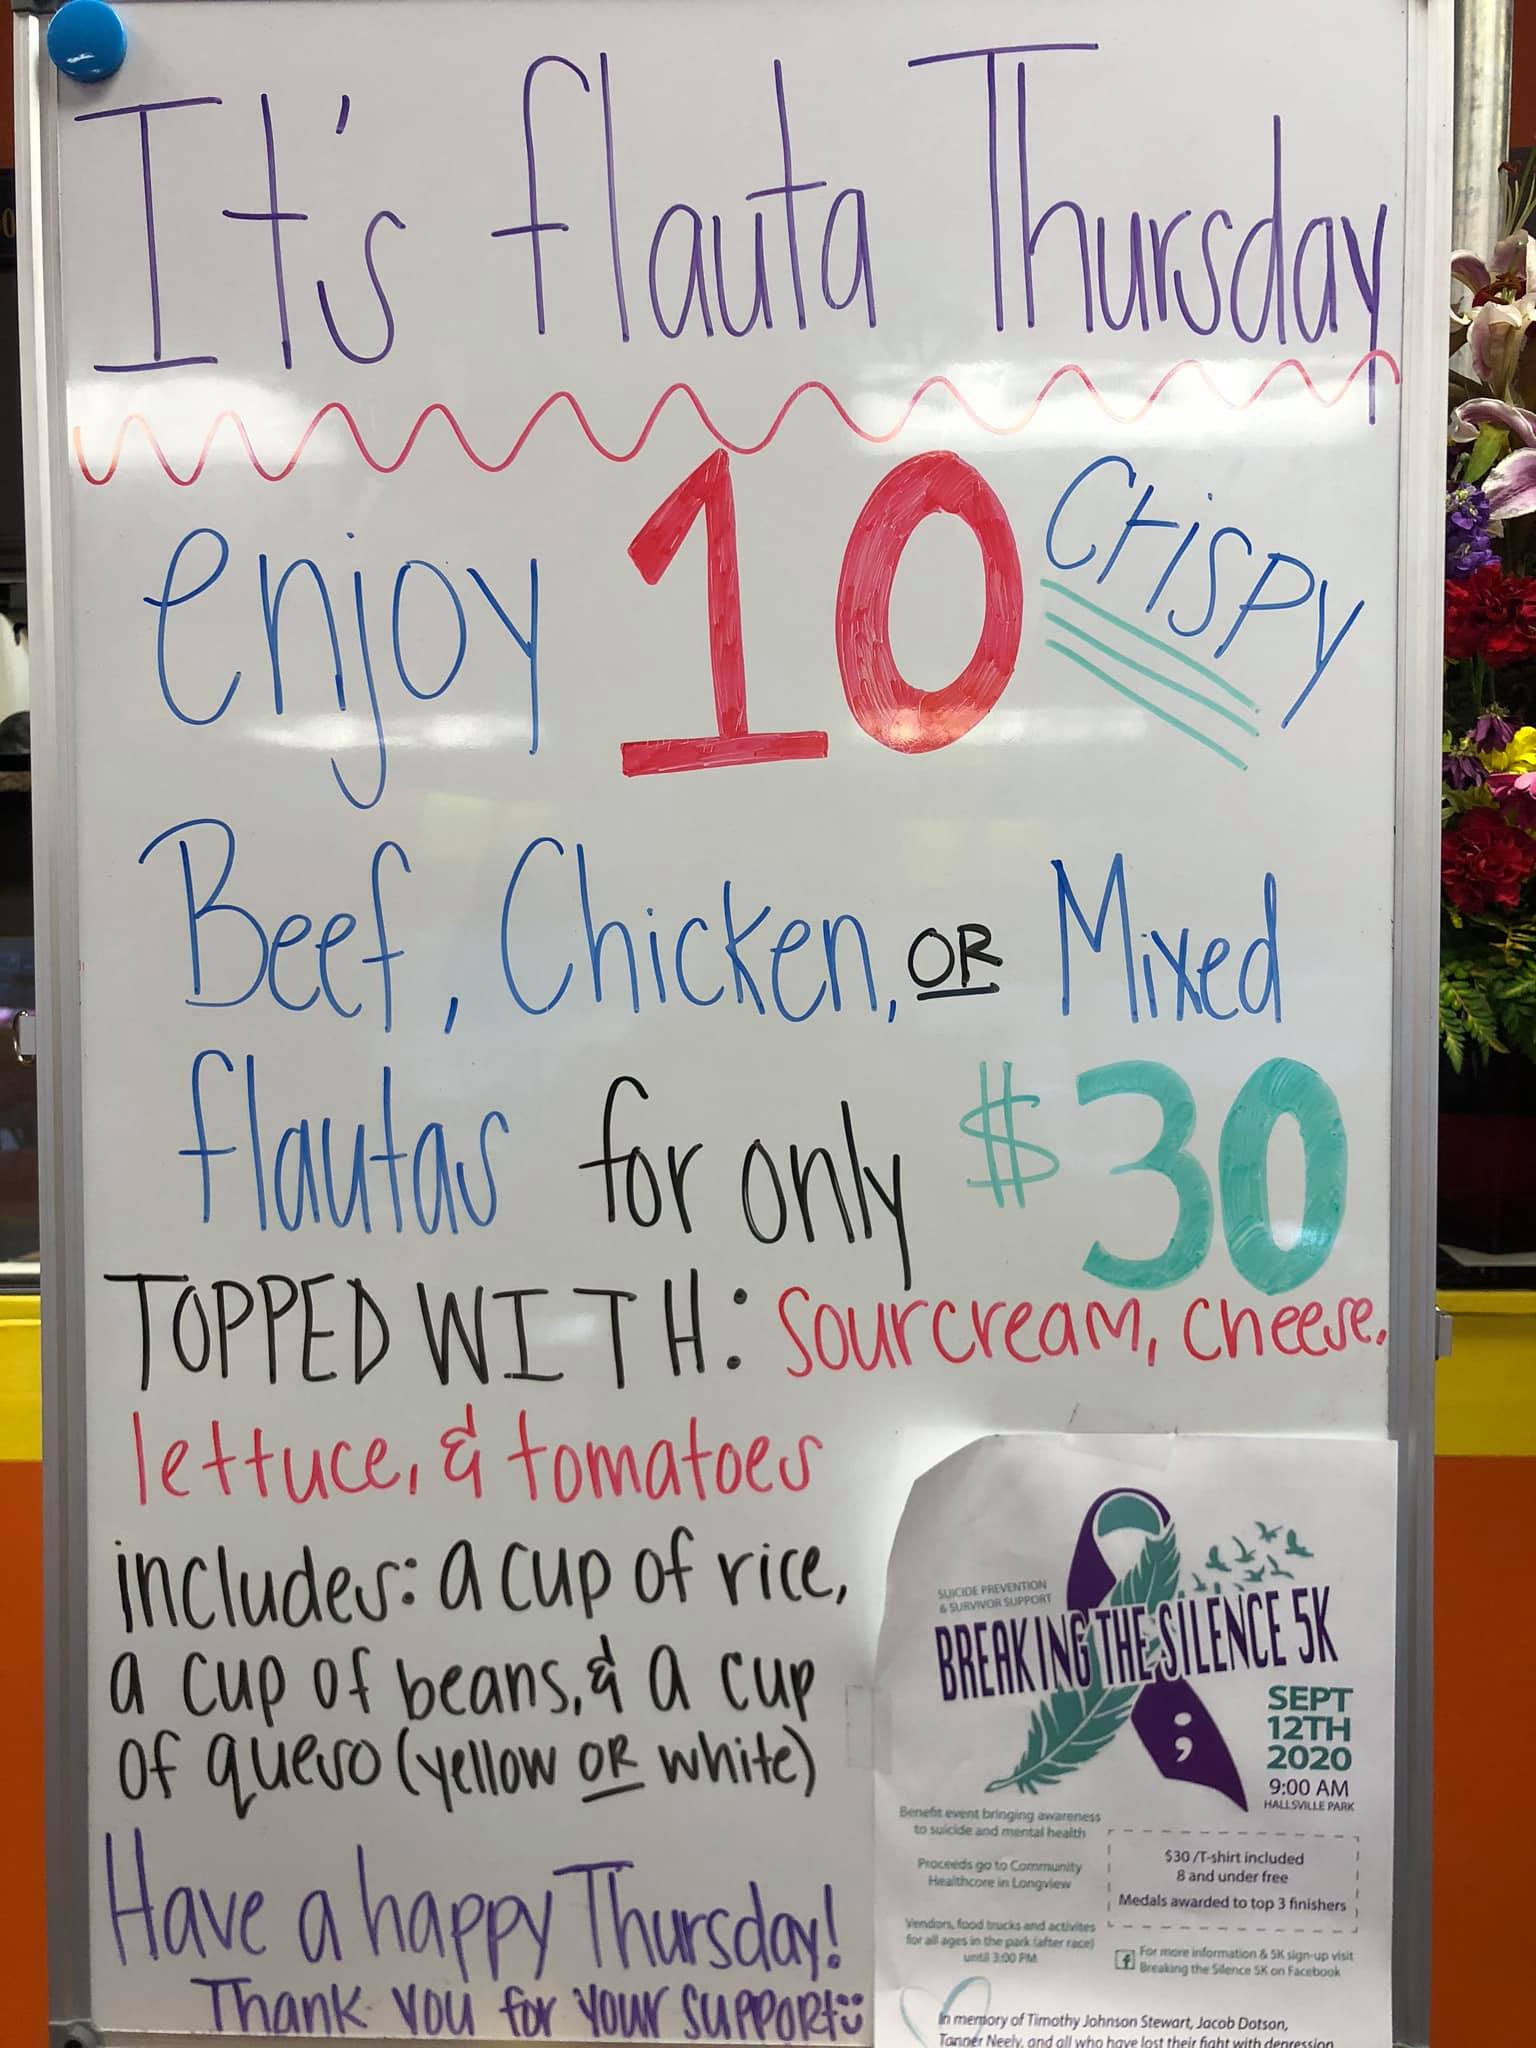 It's flauta Thursday
enjoy 10 Crispy
Beef, Chicken, OR Mixed
flautas for only $30
TOPPED WITH: Sourcream, cheese,
lettuce, & tomatoes
includes: a cup of rice,
a cup of beans, & a cup
of queso (yellow OR white)
Have a happy Thursday!
Thank you for your support
SUICIDE PREVENTION
& SURVIVOR SUPPORT
BREAKING THE SILENCE 5K
SEPT
12TH
2020
9:00 AM
HALLSVILLE PARK
Benefit event bringing awareness
to suicide and mental health
Proceeds go to Community
Healthcore in Longview
Vendors, food trucks and activites
for all ages in the park (after race)
until 3:00 PM
$30 /T-shirt included
8 and under free
Medals awarded to top 3 finishers
f For more information & 5K sign-up visit
Breaking the Silence 5K on Facebook
In memory of Timothy Johnson Stewart, Jacob Dotson,
Tanner Neely, and all who have lost their fight with depression